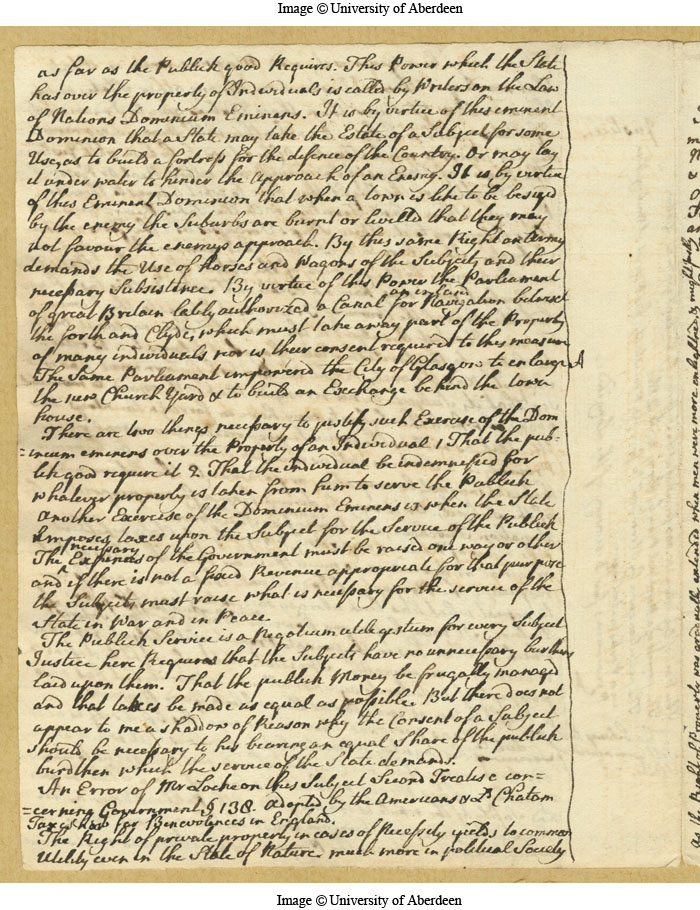 Image © University of Aberdeen
as far as the Publick good Requires. This Power which the State
has over the property of Individuals is called by Writers on the Law
of Nations Dominium Eminens. It is by virtue of this eminent
Dominion that a State may take the Estate of a Subject for some
Use, as to build a fortress for the defence of the Country. Or may lay
it under water to hinder the Approach of an Enemy. It is by virtue
of this Eminent Dominion that when a town is like to be besieged
by the enemy the Suburbs are burnt or levelled that they may
not favour the enemys approach. By this same Right an Army
demands the Use of Horses and Wagons of the Subjects and their
necessary Subsistence. By virtue of this Power the Parliament
of great Britain lately authorized a Canal for Navigation betwixt
the forth and Clyde, which must take away part of the Property
of many individuals nor is their consent required to this measure
The Same Parliament impowered the City of Glasgow to enlarge
the new Church Yard & to build an Exchange behind the town
house.
There are two things necessary to justify such Exercise of the Dom
=inium eminens over the Property of an Individual 1 That the pub-
lick good require it 2. That the individual be indemnified for
whatever property is taken from him to serve the Publick
Another Exercise of the Dominium Eminens is when the State
Imposes taxes upon the Subject for the Service of the Publick
necessary
The Expences of the Government must be raised one way or other
and if there is not a fixed Revenue appropriate for that purpose
the Subjects must raise what is necessary for the service of the
State in War and in Peace
The Publick Service is a Negotium utile gestum for every Subject
Justice here Requires that the Subjects have no unnecessary burthens
laid upon them. That the publick Money be frugally managed
and that taxes be made as equal as possible. But there does not
appear to me a shadow of Reason why the Consent of a Subject
should be necessary to his bearing an equal Share of the publick
burdthen which the service of the State demands.
An Error of Mr Locke on this Subject Second Treatise con=
=cerning Government § 138. adopted by the Americans & Ld Chatam
Taxes for Benevolences in England.
The Right of private property in cases of Necessity yields to common
Utility even in the State of Nature, much more in political Society
Image © University of Aberdeen